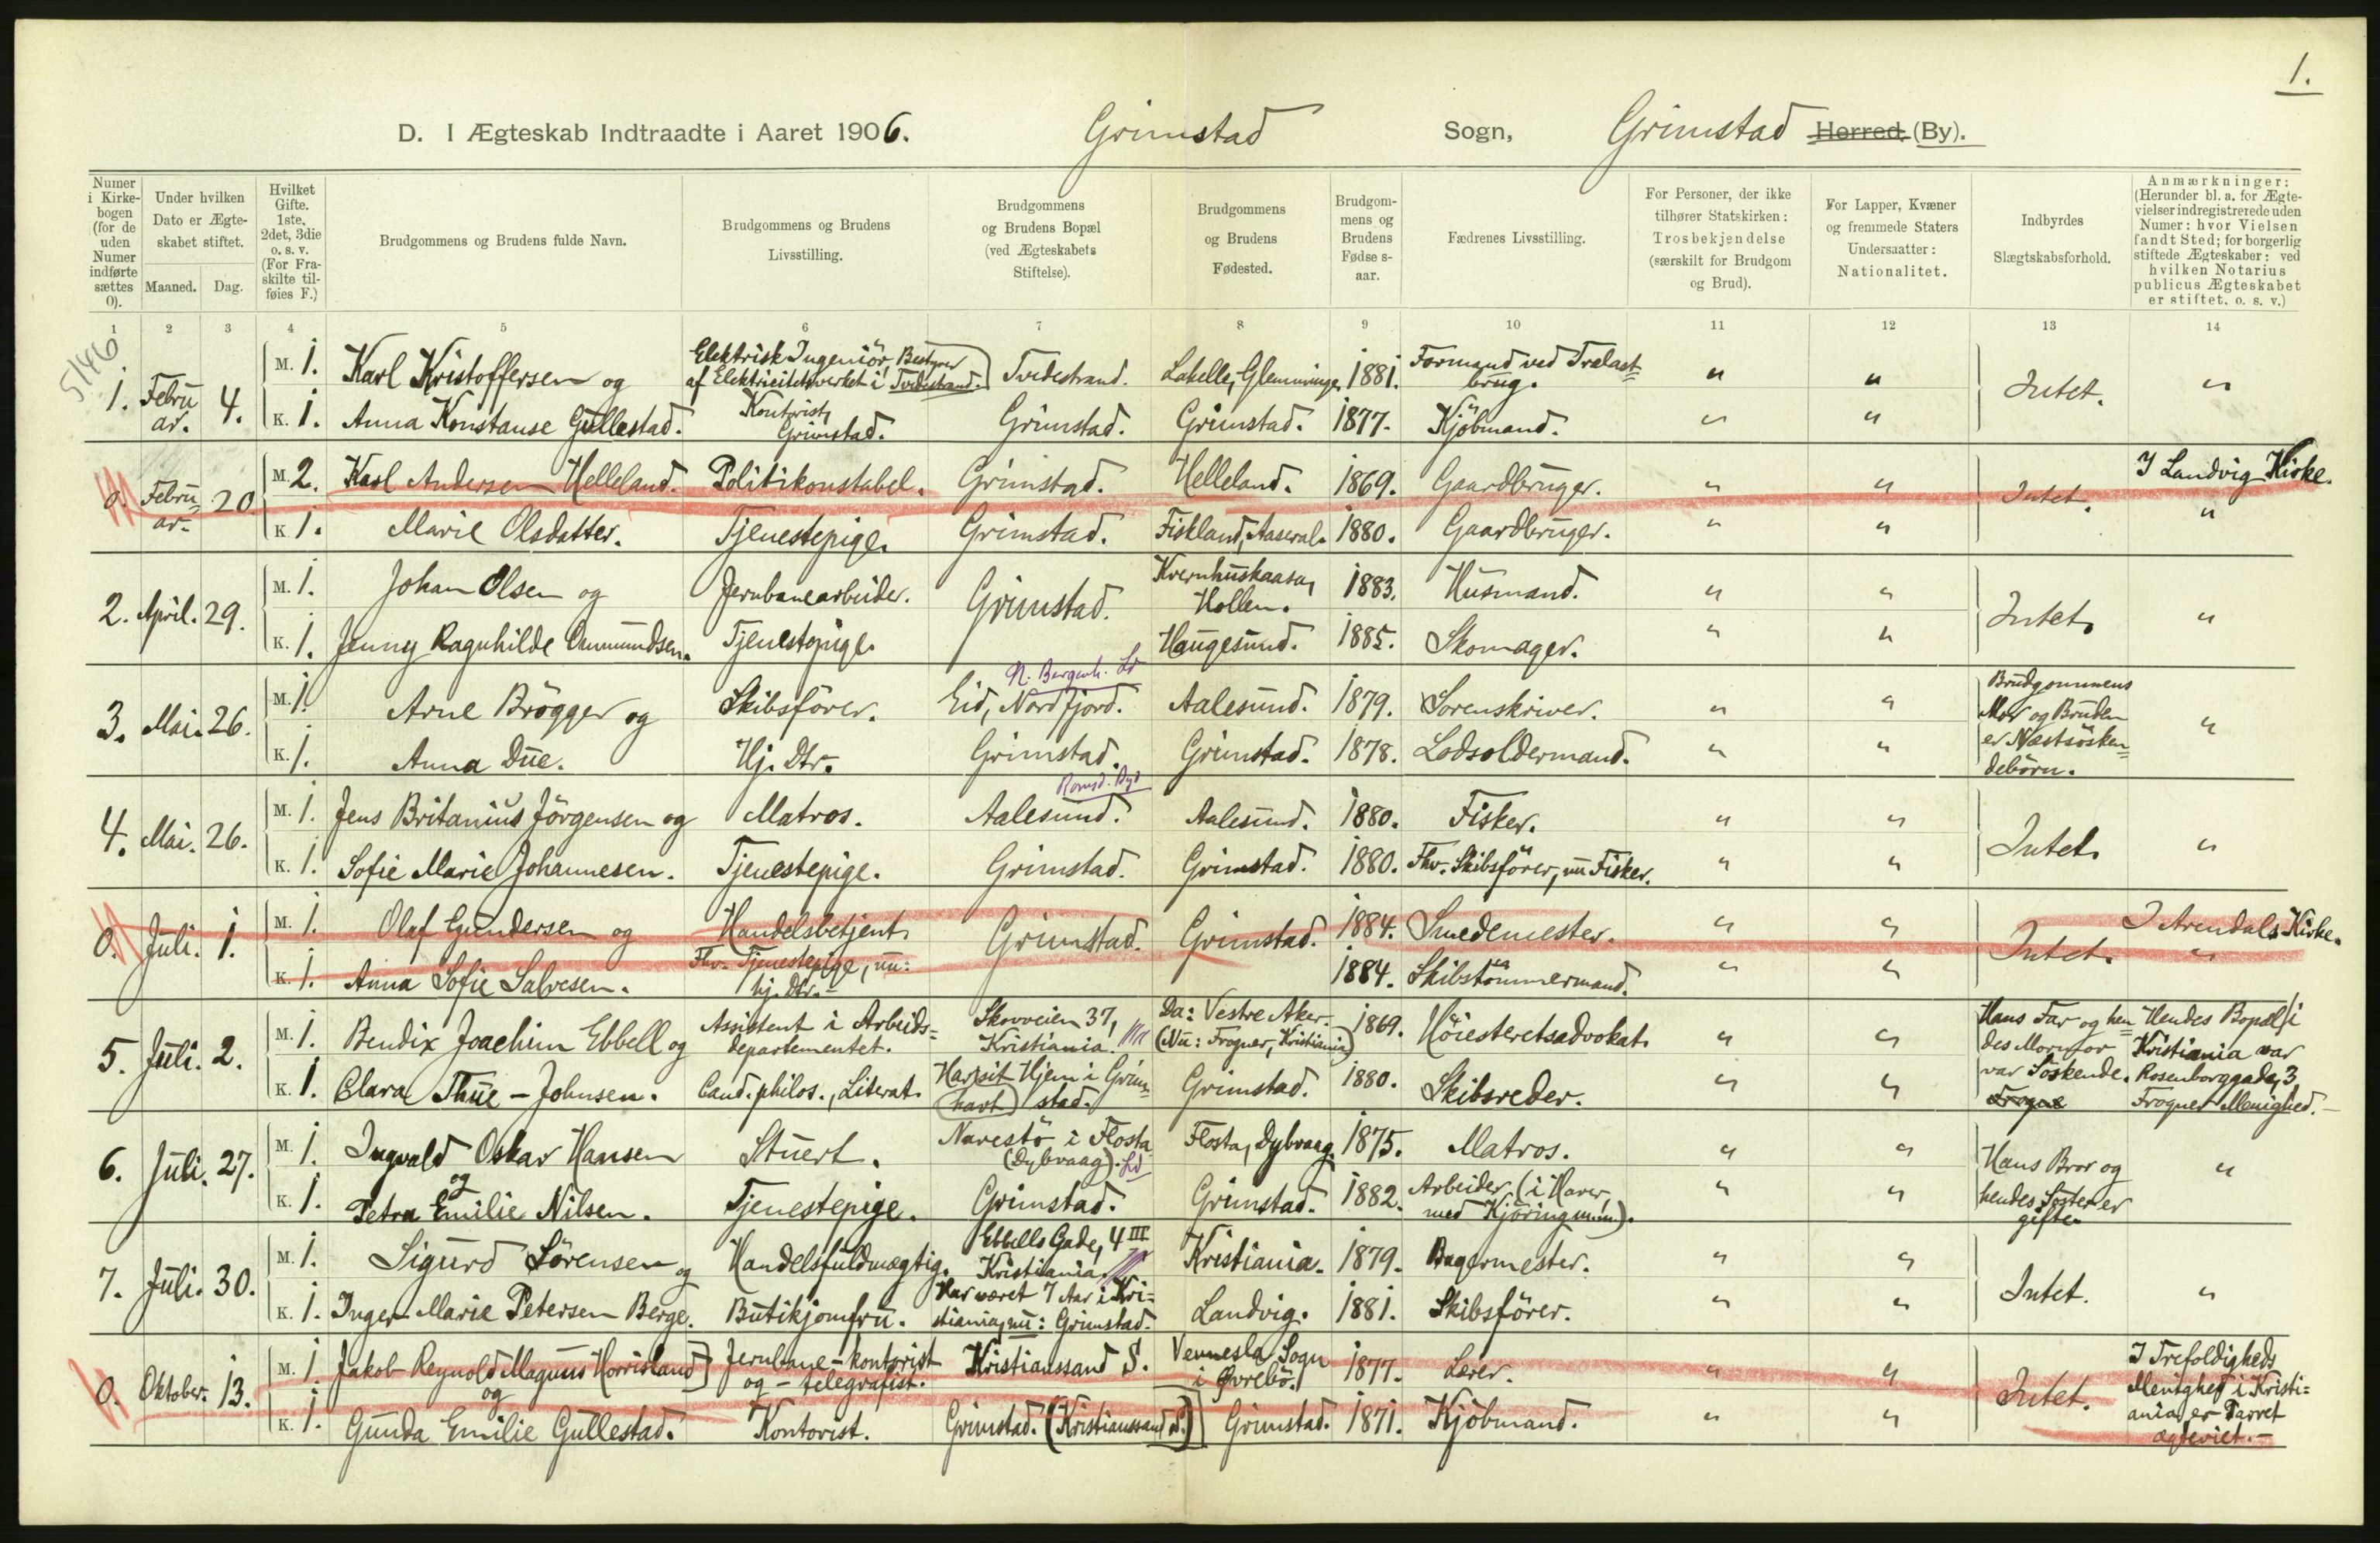 1.
D. I Ægteskab Indtraadte i Aaret 1906. Grimstad Sogn, Grimstad Herred, (By).
Numer i Kirkebogen (for de uden Numer indførte sættes 0).
Under hvilken Dato er Ægteskabet stiftet.
Maaned. Dag.
Hvilket Gifte. 1ste, 2det, 3die o. s. v. (For Fraskilte tilføies F.)
Brudgommens og Brudens fulde Navn.
Brudgommens og Brudens Livsstilling.
Brudgommens og Brudens Bopæl (ved Ægteskabets Stiftelse).
Brudgommens og Brudens Fødested.
Brudgommens og Brudens Fødse s-aar.
Fædrenes Livsstilling.
For Personer, der ikke tilhører Statskirken: Trosbekjendelse (særskilt for Brudgom og Brud).
For Lapper, Kvæner og fremmede Staters Undersaatter: Nationalitet.
Indbyrdes Slægtskabsforhold.
Anmærkninger: (Herunder bl. a. for Ægtevielser indregistrerede uden Numer: hvor Vielsen fandt Sted; for borgerlig stiftede Ægteskaber: ved hvilken Notarius publicus Ægteskabet er stiftet, o. s. v.)
1 2 3 4 5 6 7 8 9 10 11 12 13 14
5146
1. Februar. 4. M. 1. Karl Kristoffersen og Elektrisk Ingeniör, Bestyrer af Elektricitetsverket i Tvedestrand. Tvedestrand. Labelle, Glemminge. 1881. Formand ved Trælastbrug. " " Intet. "
K. 1. Anna Konstanse Gullestad. Kontorist, Grimstad. Grimstad. Grimstad. 1877. Kjöbmand. " "
0. Februar. 20. M. 2. Karl Andersen Helleland. Politikonstabel. Grimstad. Helleland. 1869. Gaardbruger. " " Intet. I Landvig Kirke.
K. 1. Marie Olsdatter. Tjenestepige. Grimstad. Fiskland, Aaseral. 1880. Gaardbruger. " " "
2. April. 29. M. 1. Johan Olsen og Jernbanearbeider. Grimstad. Kvernhuskaasa, Hollen. 1883. Husmand. " " Intet. "
K. 1. Jenny Ragnhilde Ommundsen. Tjenestepige. Haugesund. 1885. Skomager. " "
N. Bergenh. Ld
3. Mai. 26. M. 1. Arne Brögger og Skibsförer. Eid, Nordfjord. Aalesund. 1879. Sorenskriver. " " Brudgommens Mor og Bruden er Næstsöskendebörn. "
K. 1. Anna Due. Hj. Dtr. Grimstad. Grimstad. 1878. Lodsoldermand. " "
Romsd. By
4. Mai. 26. M. 1. Jens Britanius Jörgensen og Matros. Aalesund. Aalesund. 1880. Fisker. " " Intet. "
K. 1. Sofie Marie Johannesen. Tjenestepige. Grimstad. Grimstad. 1880. Fhv. Skibsförer, nu Fisker. " "
0. Juli. 1. M. 1. Olaf Gundersen og Handelsbetjent. Grimstad. Grimstad. 1884. Smedemester. " " Intet. I Arendals Kirke.
K. 1. Anna Sofie Salvesen. Fhv. Tjenestepige, nu: hj. Dtr. 1884. Skibstömmermand. " " "
5. Juli. 2. M. 1. Bendix Joachim Ebbell og Assistent i Arbeidsdepartementet. Skovveien 37, Kristiania. Da: Vestre Aker. (Nu: Frogner, Kristiania) 1869. Höiesteretsadvokat. " " Hans Far og hendes Mormor var Söskende. Hendes Bopæl i Kristiania var Rosenborggade 3, Frogner Menighed.
K. 1. Clara Thue-Johnsen. Cand. philos., Literat. Har (havt) sit Hjem i Grimstad. Grimstad. 1880. Skibsreder. " "
6. Juli. 27. M. 1. Ingvald Oskar Hansen og Stuert. Narestö i Flosta (Dybvaag). Ld Flosta, Dybvaag. 1875. Matros. " " Hans Bror og hendes Söster er gifte. "
K. 1. Petra Emilie Nilsen. Tjenestepige. Grimstad. Grimstad. 1882. Arbeider (i Haver, med Kjöring m.m.). " "
7. Juli. 30. M. 1. Sigurd Sörensen og Handelsfuldmægtig. Ebbells Gade, 4 III Kristiania. Kristiania. 1879. Bagermester. " " Intet. "
K. 1. Inger Marie Petersen Berge. Butikjomfru. Har været 7 Aar i Kristiania, nu: Grimstad. Landvig. 1881. Skibsförer. " "
0. Oktober. 13. M. 1. Jakob Reynold Magnus Horrisland og Jernbane-kontorist og -telegrafist. Kristianssand S. Vennesla Sogn i Øvrebö. 1877. Lærer. " " Intet. I Trefoldigheds Menighed i Kristiania er Parret ægteviet.
K. 1. Gunda Emilie Gullestad. Kontorist. Grimstad. (Kristianssand S.) Grimstad. 1871. Kjöbmand. " "